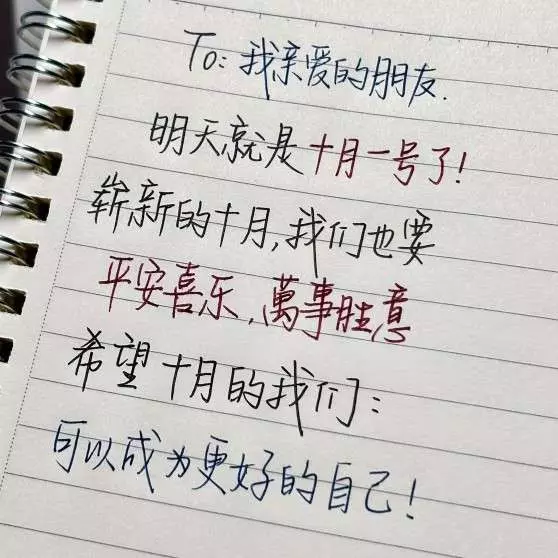 To: 我亲爱的朋友.
明天就是十月一号了!
崭新的十月,我们也要
平安喜乐,萬事胜意
希望十月的我们:
可以成为更好的自己!